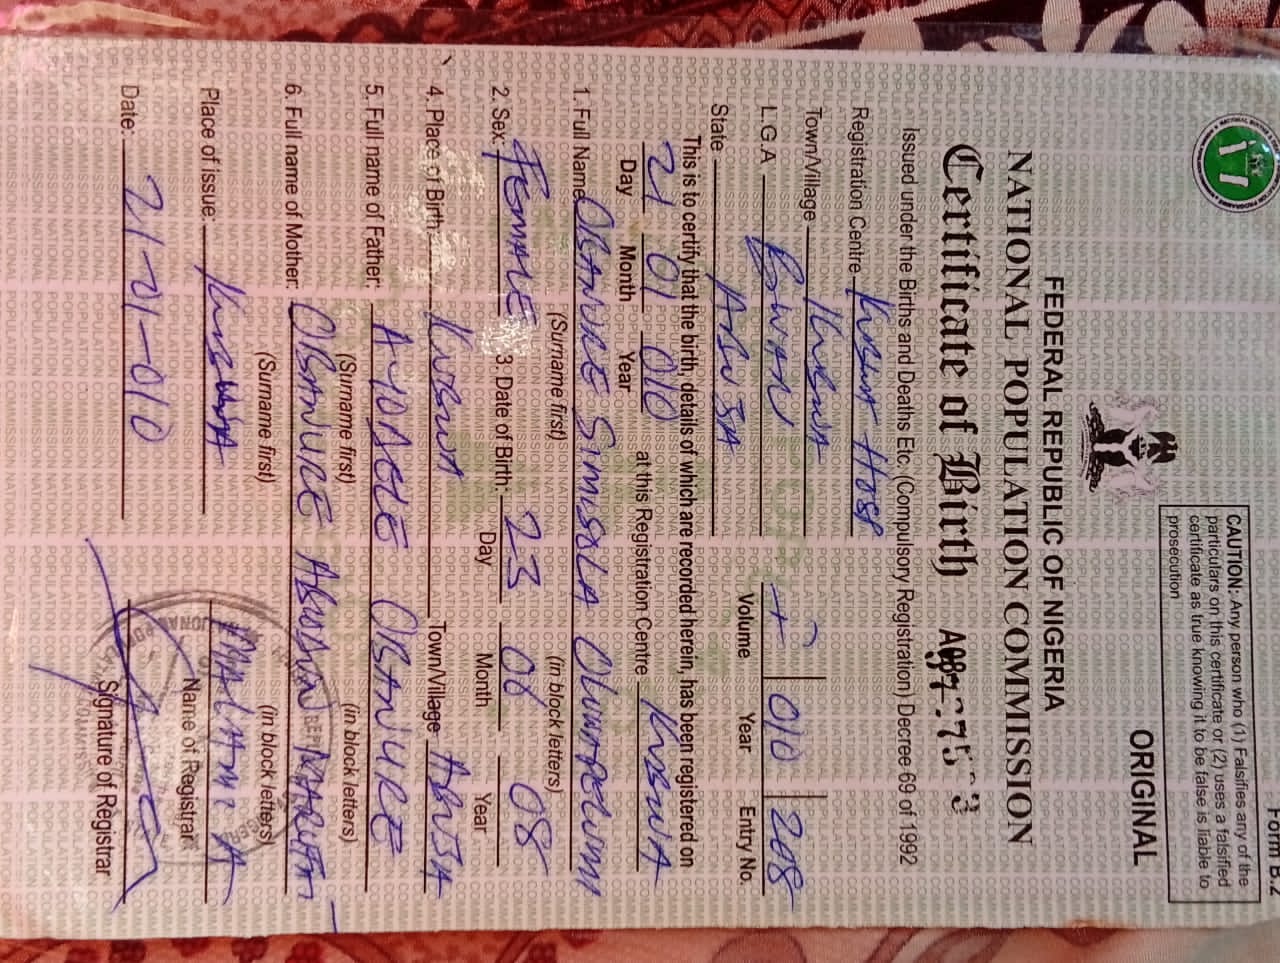 Form B.2
CAUTION: Any person who (1) Falsifies any of the
particulars on this certificate or (2) uses a falsified
certificate as true knowing it to be false is liable to
prosecution
ORIGINAL
FEDERAL REPUBLIC OF NIGERIA
NATIONAL POPULATION COMMISSION
Certificate of Birth
Issued under the Births and Deaths Etc. (Compulsory Registration) Decree 69 of 1992
Registration Centre KUBWA HOSP
Town/Village KUBWA
L.G.A BWARI 010 208
Volume Year Entry No.
State ABUJA
This is to certify that the birth, details of which are recorded herein, has been registered on
21 01 010 at this Registration Centre KUBWA
Day Month Year
1. Full Name OBANURE SIMISOLA OLUWAPELUMI
(Surname first) (in block letters)
2. Sex: FEMALE 3. Date of Birth: 23 06 08
Day Month Year
4. Place of Birth: KUBWA Town/Village ABUJA
5. Full name of Father: AYODELE OBANURE
(Surname first) (in block letters)
6. Full name of Mother: OBANURE
(Surname first) (in block letters)
Place of issue: KUBWA A
Name of Registrar
Date: 21-01-010
Signature of Registrar